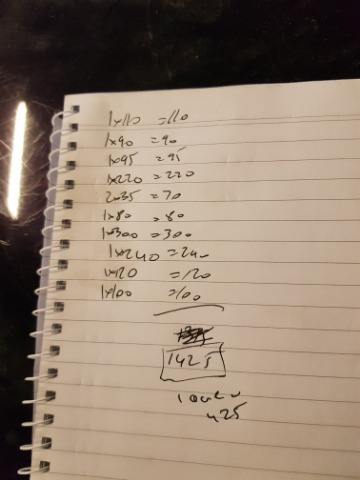 1x110 =110
1x90 =90
1x95 =95
1x220 =220
2x35 =70
1x80 =80
1x300 =300
1x240 =240
1x120 =120
1x100 =100
1425
425